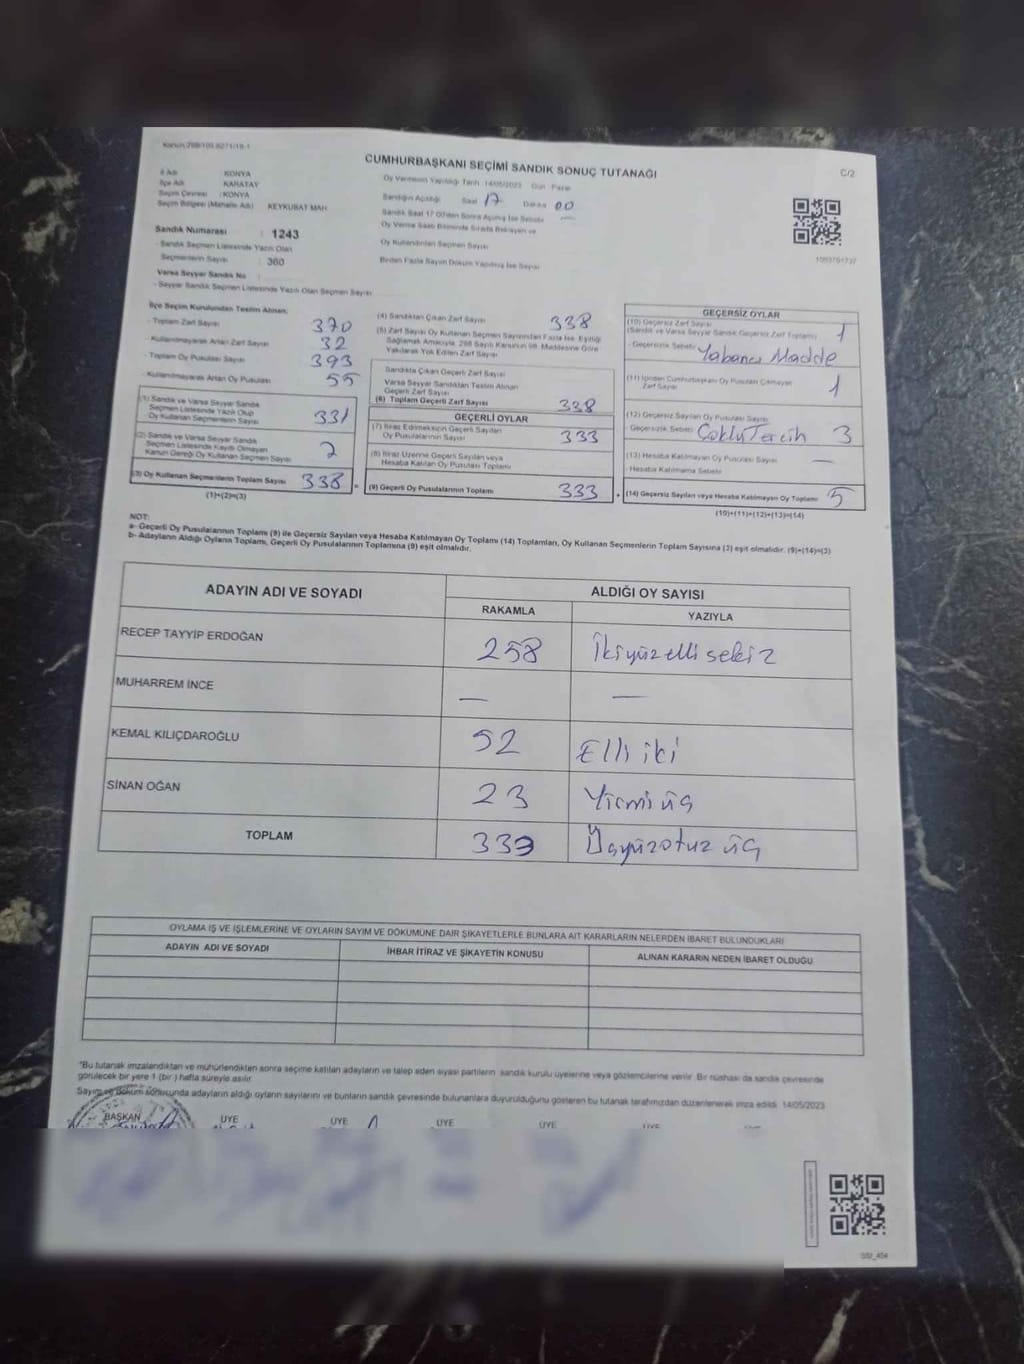 Kanun:298/105,6271/19-1
CUMHURBAŞKANI SEÇİMİ SANDIK SONUÇ TUTANAĞI
C/2
İl Adı KONYA
İlçe Adı KARATAY
Seçim Çevresi : KONYA
Seçim Bölgesi (Mahalle Adı) KEYKUBAT MAH.
Oy Vermenin Yapıldığı Tarih :14/05/2023 Gün : Pazar
Sandığın Açıldığı Saat 17 Dakika 00
Sandık Saat 17.00'den Sonra Açılmış İse Sebebi —
Oy Verme Saati Bitiminde Sırada Bekleyen ve
Oy Kullandırılan Seçmen Sayısı
Birden Fazla Sayım Döküm Yapılmış İse Sayısı
Sandık Numarası : 1243
- Sandık Seçmen Listesinde Yazılı Olan
Seçmenlerin Sayısı : 360
Varsa Seyyar Sandık No :
- Seyyar Sandık Seçmen Listesinde Yazılı Olan Seçmen Sayısı :
İlçe Seçim Kurulundan Teslim Alınan;
- Toplam Zarf Sayısı 370
- Kullanılmayarak Artan Zarf Sayısı 32
- Toplam Oy Pusulası Sayısı 393
- Kullanılmayarak Artan Oy Pusulası 55
(1) Sandık ve Varsa Seyyar Sandık
Seçmen Listesinde Yazılı Olup
Oy Kullanan Seçmenlerin Sayısı 331
(2) Sandık ve Varsa Seyyar Sandık
Seçmen Listesinde Kayıtlı Olmayan
Kanun Gereği Oy Kullanan Seçmen Sayısı
(3) Oy Kullanan Seçmenlerin Toplam Sayısı 338
(1)+(2)=(3)
(4) Sandıktan Çıkan Zarf Sayısı 338
(5) Zarf Sayısı Oy Kullanan Seçmen Sayısından Fazla İse, Eşitliği
Sağlamak Amacıyla, 298 Sayılı Kanunun 98. Maddesine Göre
Yakılarak Yok Edilen Zarf Sayısı
Sandıkta Çıkan Geçerli Zarf Sayısı
Varsa Seyyar Sandıktan Teslim Alınan
Geçerli Zarf Sayısı
(6) Toplam Geçerli Zarf Sayısı 338
GEÇERLİ OYLAR
(7) İtiraz Edilmeksizin Geçerli Sayılan
Oy Pusulalarının Sayısı 333
(8) İtiraz Üzerine Geçerli Sayılan veya
Hesaba Katılan Oy Pusulası Toplamı
(9) Geçerli Oy Pusulalarının Toplamı 333
GEÇERSİZ OYLAR
(10) Geçersiz Zarf Sayısı
(Sandık ve Varsa Seyyar Sandık Geçersiz Zarf Toplamı) 1
- Geçersizlik Sebebi: Yabancı Madde
(11) İçinden Cumhurbaşkanı Oy Pusulası Çıkmayan
Zarf Sayısı 1
(12) Geçersiz Sayılan Oy Pusulası Sayısı
- Geçersizlik Sebebi: Çoklu Tercih 3
(13) Hesaba Katılmayan Oy Pusulası Sayısı —
- Hesaba Katılmama Sebebi:
(14) Geçersiz Sayılan veya Hesaba Katılmayan Oy Toplamı 5
(10)+(11)+(12)+(13)=(14)
NOT:
a- Geçerli Oy Pusulalarının Toplamı (9) ile Geçersiz Sayılan veya Hesaba Katılmayan Oy Toplamı (14) Toplamları, Oy Kullanan Seçmenlerin Toplam Sayısına (3) eşit olmalıdır. (9)+(14)=(3)
b- Adayların Aldığı Oyların Toplamı, Geçerli Oy Pusulalarının Toplamına (9) eşit olmalıdır.
ADAYIN ADI VE SOYADI ALDIĞI OY SAYISI
RAKAMLA YAZIYLA
RECEP TAYYİP ERDOĞAN 258 İkiyüzelli sekiz
MUHARREM İNCE — —
KEMAL KILIÇDAROĞLU 52 Elli iki
SİNAN OĞAN 23 Yirmi üç
TOPLAM 333 Üçyüzotuz üç
OYLAMA İŞ VE İŞLEMLERİNE VE OYLARIN SAYIM VE DÖKÜMÜNE DAİR ŞİKAYETLERLE BUNLARA AİT KARARLARIN NELERDEN İBARET BULUNDUKLARI
ADAYIN ADI VE SOYADI İHBAR İTİRAZ VE ŞİKAYETİN KONUSU ALINAN KARARIN NEDEN İBARET OLDUĞU
*Bu tutanak imzalandıktan ve mühürlendikten sonra seçime katılan adayların ve talep eden siyasi partilerin sandık kurulu üyelerine veya gözlemcilerine verilir. Bir nüshası da sandık çevresinde
görülecek bir yere 1 (bir ) hafta süreyle asılır.
Sayım ve döküm sonucunda adayların aldığı oyların sayılarını ve bunların sandık çevresinde bulunanlara duyurulduğunu gösteren bu tutanak tarafımızdan düzenlenerek imza edildi. 14/05/2023
BAŞKAN ÜYE ÜYE ÜYE ÜYE ÜYE